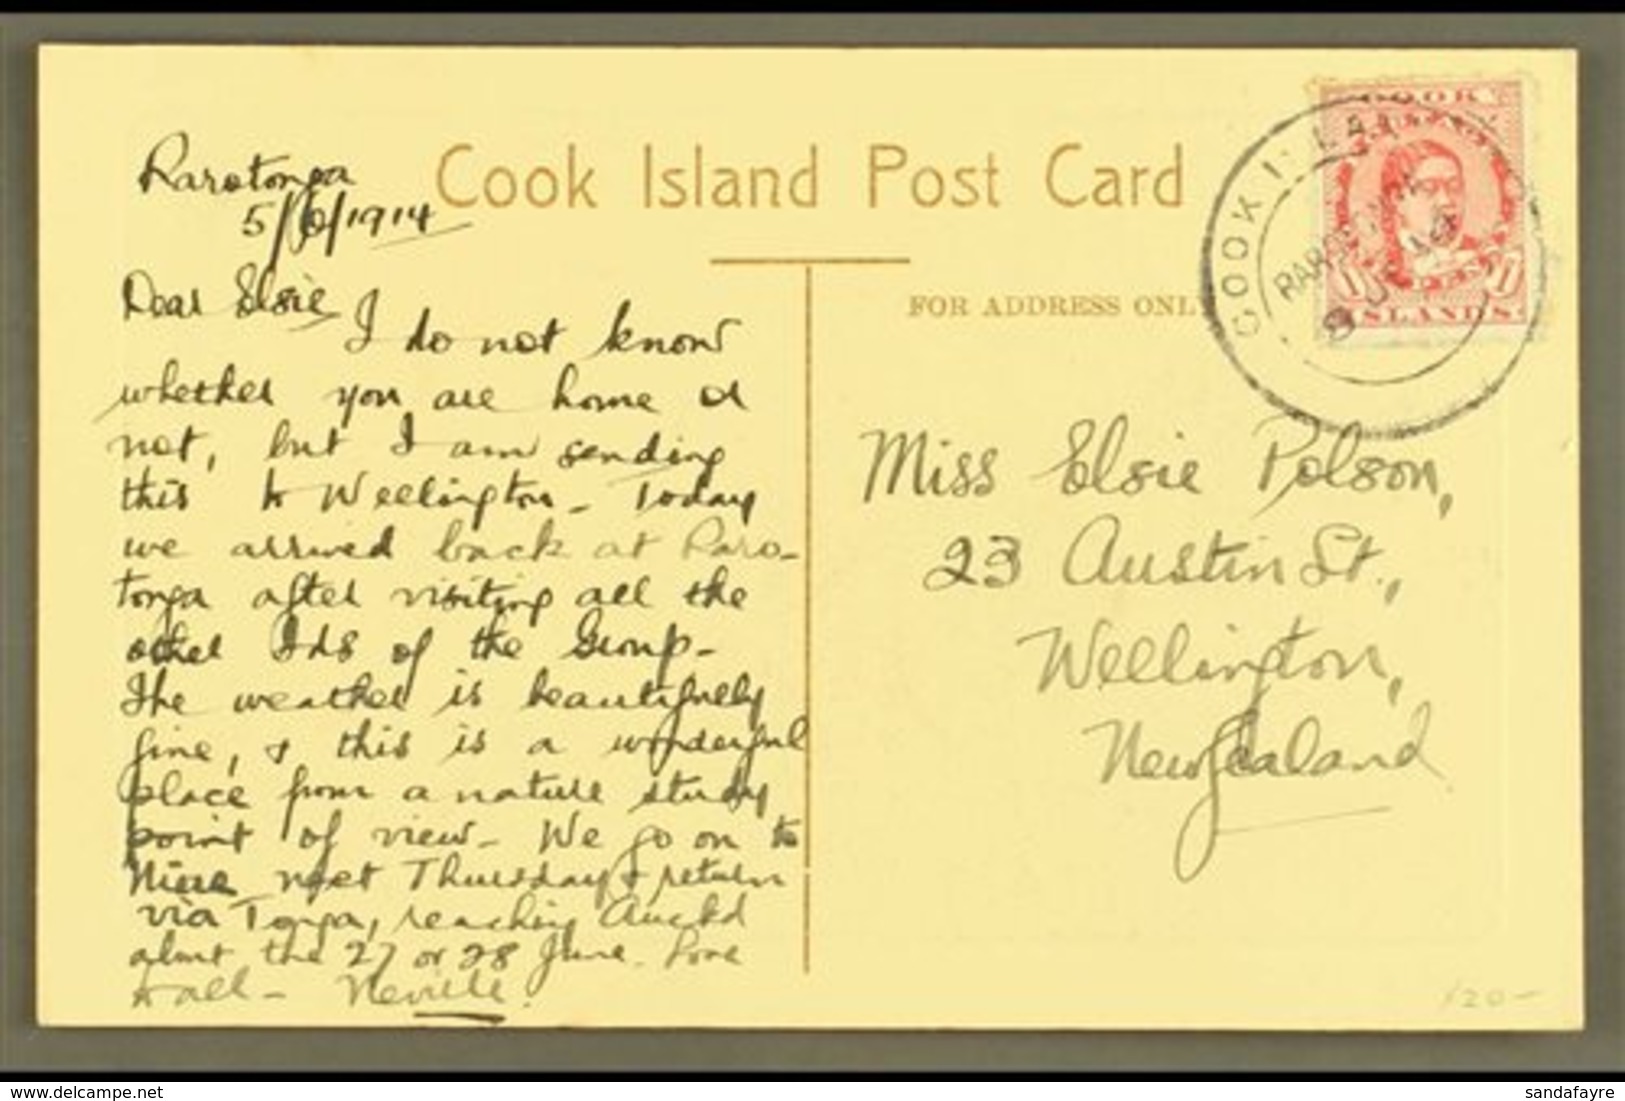 Cook Island Post Card
FOR ADDRESS ONLY
Rarotonga
5/6/1914
Dear Elsie
I do not know
whether you are home or
not, but I am sending
this to Wellington – Today
we arrived back at Raro-
tonga after visiting all the
other Ids of the Group –
The weather is beautifully
fine, & this is a wonderful
place from a nature study
point of view – We go on to
Niue next Thursday & return
via Tonga, reaching Auckd
about the 27 or 28 June. Love
to all – Neville.
COOK ISLANDS
RAROTONGA
8 JE 14
COOK
ISLANDS
Miss Elsie Polson,
23 Austin St.,
Wellington,
New Zealand
120-
© delcampe.net
sandafayre